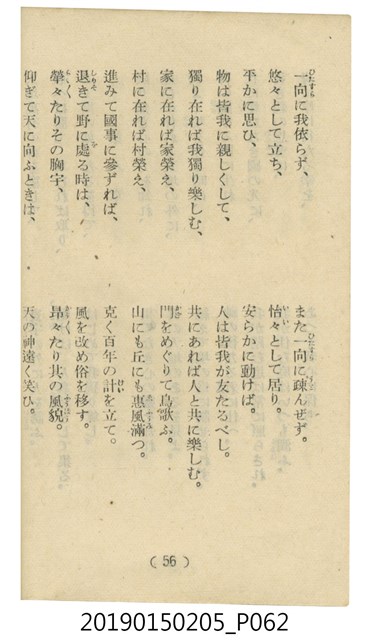 一向に我依らず、
また一向に疎んぜず。
悠々として立ち、
怡々として居り。
平かに思ひ、
安らかに動けば。
物は皆我に親しくして、
人は皆我が友たるべし。
獨り在れば我獨り樂しむ、
共にあれば人と共に樂しむ。
家に在れば家榮え、
門をめぐりて鳥歌ふ。
村に在れば村榮え、
山にも丘にも惠風滿つ。
進みて國事に參ずれば、
克く百年の計を立て。
退きて野に處る時は、
風を改め俗を移す。
犖々たりその胸宇、
昂々たり其の風貌。
仰ぎて天に向ふときは、
天の神遠く笑ひ。
(56)
20190150205_P062